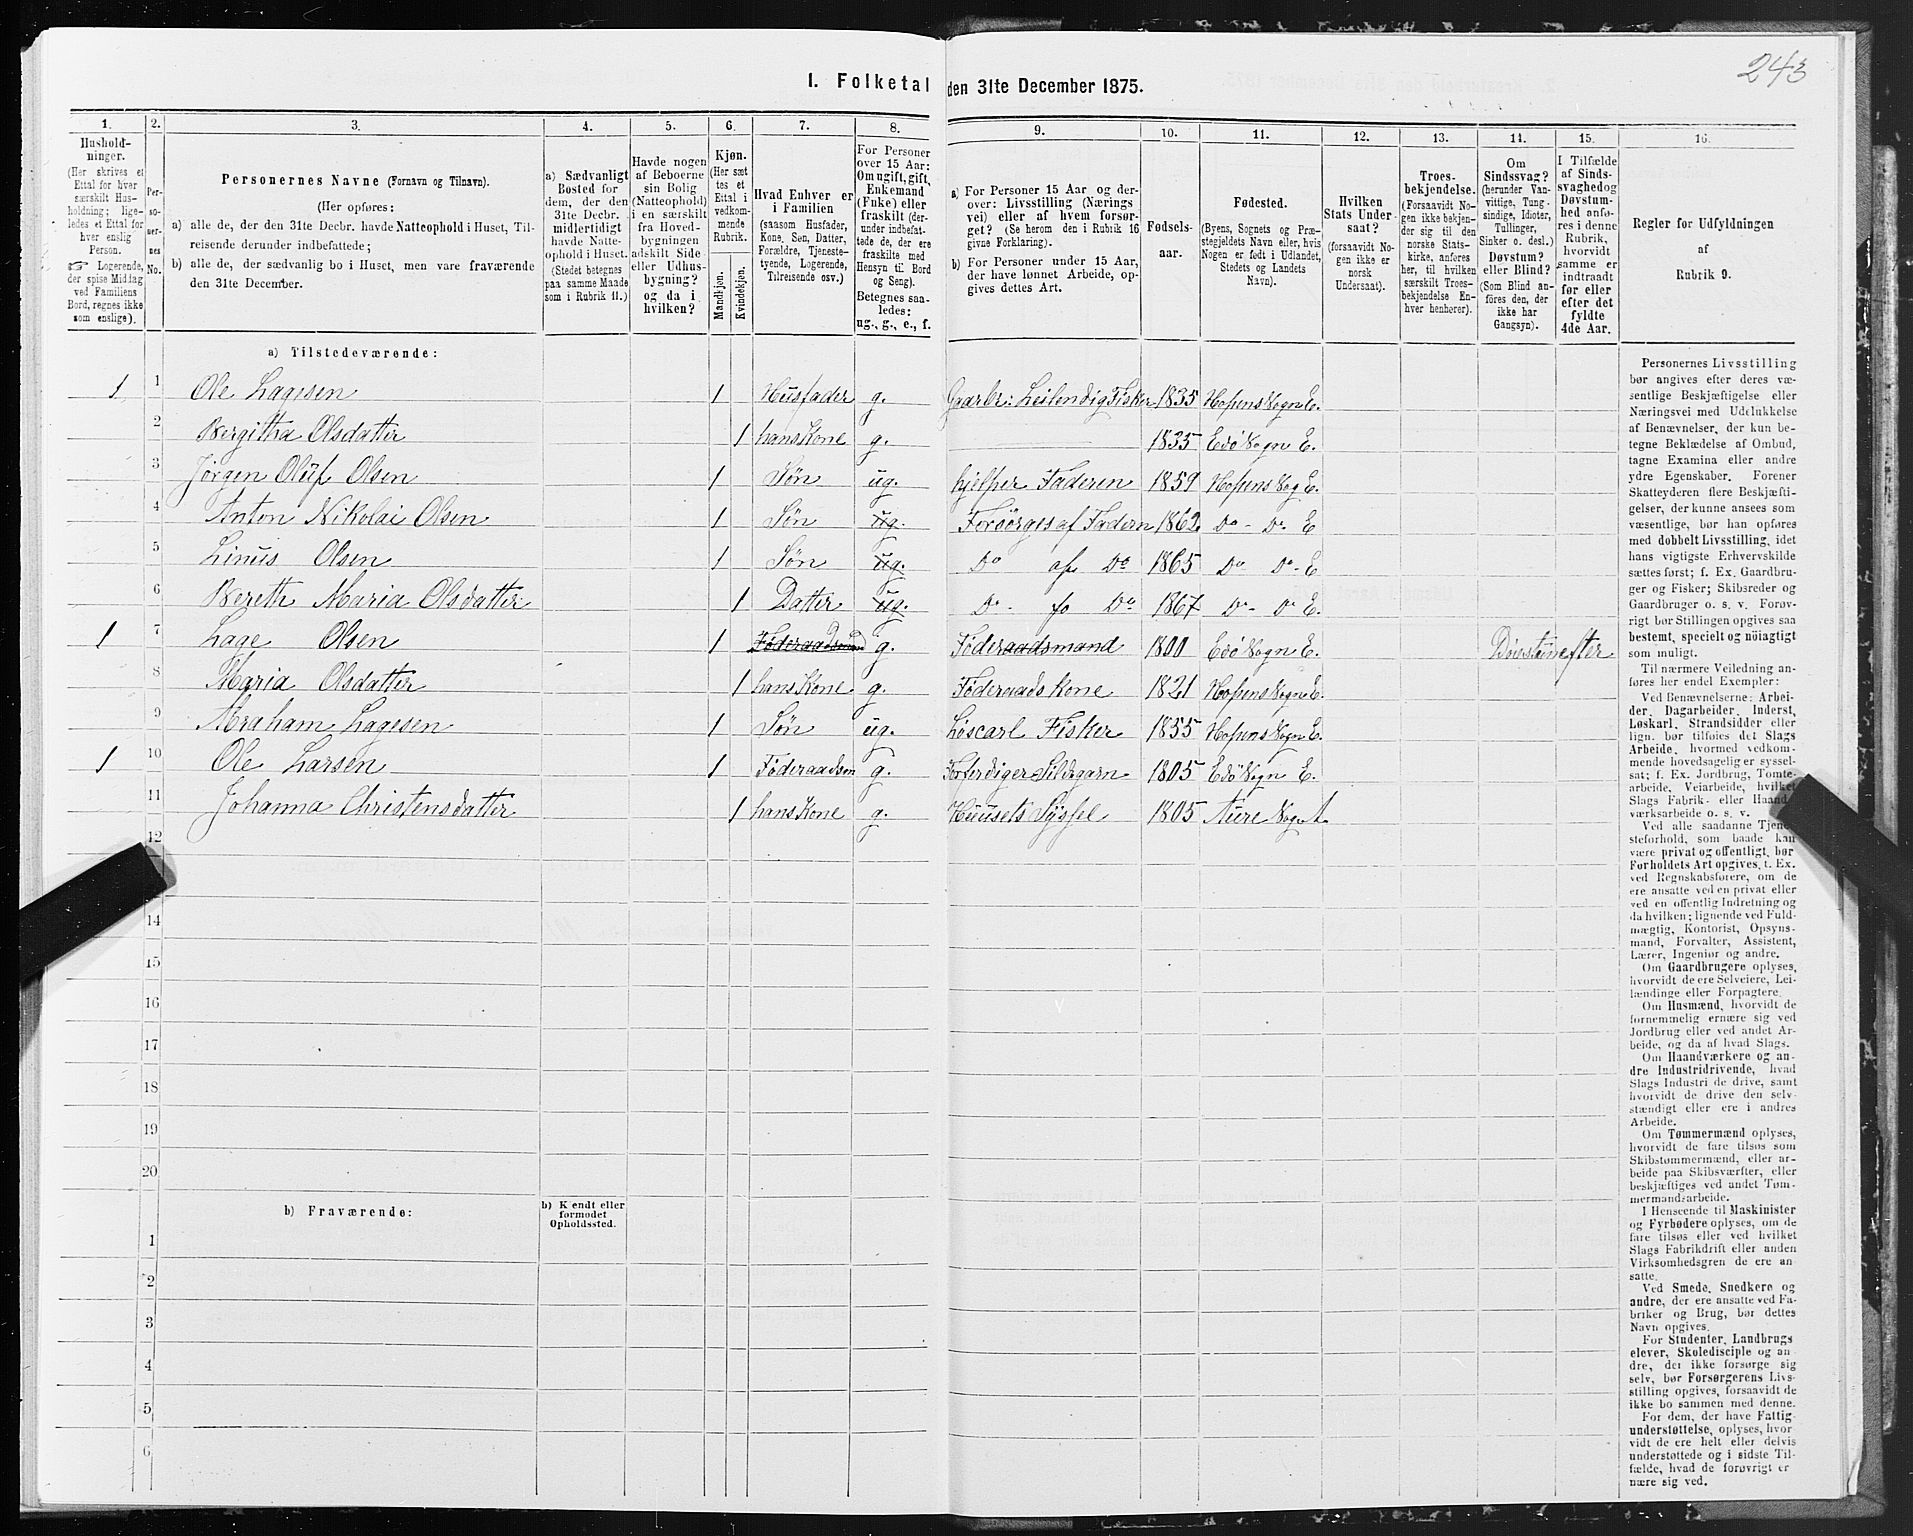 243
I. Folketal den 31te December 1875.
1. 2. 3. 4. 5. 6. 7. 8. 9. 10. 11. 12. 13. 14. 15. 16.
Hushold-
ninger.
(Her skrives et
Ettal for hver
særskilt Hus-
holdning; lige-
ledes et Ettal for
hver enslig
Person.
☞ Logerende,
der spise Middag
ved Familiens
Bord, regnes ikke
som enslige).
Per-
so-
ner-
nes
No.
Personernes Navne (Fornavn og Tilnavn).
(Her opføres:
a) alle de, der den 31te Decbr. havde Natteophold i Huset, Til-
reisende derunder indbefattede;
b) alle de, der sædvanlig bo i Huset, men vare fraværende
den 31te December.
a) Sædvanligt
Bosted for
dem, der den
31te Decbr.
midlertidigt
havde Natte-
ophold i Huset.
(Stedet betegnes
paa samme Maade
som i Rubrik 11.)
Havde nogen
af Beboerne
sin Bolig
(Natteophold)
i en særskilt
fra Hoved-
bygningen
adskilt Side-
eller Udhus-
bygning?
og da i
hvilken?
Kjøn.
(Her sæt-
tes et
Ettal i
vedkom-
mende
Rubrik.
Mandkjøn.
Kvindekjøn.
Hvad Enhver er
i Familien
(saasom Husfader,
Kone, Søn, Datter,
Forældre, Tjeneste-
tyende, Logerende,
Tilreisende osv.)
For Personer
over 15 Aar:
Om ugift, gift,
Enkemand
(Fuke) eller
fraskilt (der-
under indbefat-
tede de, der ere
fraskilte med
Hensyn til Bord
og Seng).
Betegnes saa-
ledes:
ug., g., e., f.
a) For Personer 15 Aar og der-
over: Livsstilling (Nærings
vei) eller af hvem forsør-
get? (Se herom den i Rubrik 16
givne Forklaring).
b) For Personer under 15 Aar,
der have lønnet Arbeide, op-
gives dettes Art.
Fødsels-
aar.
Fødested.
(Byens, Sognets og Præ-
stegjeldets Navn eller, hvis
Nogen er født i Udlandet,
Stedets og Landets
Navn).
Hvilken
Stats Under-
saat?
(forsaavidt No-
gen ikke er
norsk
Undersaat).
Troes-
bekjendelse.
(Forsaavidt No-
gen ikke bekjen-
der sig til den
norske Stats-
kirke, anføres
her, til hvilken
særskilt Troes-
bekjendelse En-
hver henhører).
Om
Sindssvag?
(herunder Van-
vittige, Tung-
sindige, Idioter,
Tullinger,
Sinker o. desl.)
Døvstum?
eller Blind?
(Som Blind an-
føres den, der
ikke har
Gangsyn).
I Tilfælde
af Sinds-
svaghed og
Døvstum-
hed anfø-
res i denne
Rubrik,
hvorvidt
samme er
indtraadt
før eller
efter det
fyldte
4de Aar.
Regler for Udfyldningen
af
Rubrik 9.
a) Tilstedeværende:
1 1 Ole Lagesen 1 Husfader g. Gaarbr: Leilendig Fisker 1835 Hopens Sogn E.
2 Bergitha Olsdatter 1 hans Kone g. 1835 Edö Sogn E.
3 Jörgen Oluf Olsen 1 Søn ug. hjelper Faderen 1859 Hopens Sog E.
4 Anton Nikolai Olsen 1 Søn ug. Forsörges af Fadern 1862 Do - Do E
5 Linus Olsen 1 Søn ug. Do af Do 1865 Do Do - E
6 Bereth Maria Olsdatter 1 Datter ug. Do - Do 1867 Do - Do E.
1 7 Lage Olsen 1 Föderaadsmand g. Föderaadsmand 1800 Edö Sogn E. efter
8 Maria Olsdatter 1 hans Kone g. Föderaads Kone 1821 Hopens Sogn E.
9 Abraham Lagesen 1 Søn ug. Löscarl Fisker 1855 Hopens Sogn E.
1 10 Ole Larsen 1 Föderaadsm g. Forferdiger Sildegarn 1805 Edö Sogn E.
11 Johanna Christensdatter 1 hans Kone g. Huusets Syssel 1805 Aure Sog A.
12
14
15
16
17
18
19
20
b) Fraværende:
b) Kendt eller
formodet
Opholdssted.
1
2
3
4
5
6
Personernes Livsstilling
bør angives efter deres væ-
sentlige Beskjæftigelse eller
Næringsvei med Udelukkelse
af Benævnelser, der kun be-
tegne Beklædelse af Ombud,
tagne Examina eller andre
ydre Egenskaber. Forener
Skatteyderen flere Beskjæfti-
gelser, der kunne ansees som
væsentlige, bør han opføres
med dobbelt Livsstilling, idet
hans vigtigste Erhvervskilde
sættes først; f. Ex. Gaardbru-
ger og Fisker; Skibsreder og
Gaardbruger o. s. v. Forøv-
rigt bør Stillingen opgives saa
bestemt, specielt og nöiagtigt
som muligt.
Til nærmere Veiledning an-
føres her endel Exempler:
Ved Benævnelserne: Arbei-
der, Dagarbeider, Inderst,
Løskarl, Strandsidder eller
lign. bør tilføies det Slags
Arbeide, hvormed vedkom-
mende hovedsagelig er syssel-
sat; f. Ex. Jordbrug, Tomte-
arbeide, Veiarbeide, hvilket
Slags Fabrik- eller Haand-
værksarbeide o. s. v.
Ved alle saadanne Tjene-
steforhold, som baade kan
være privat og offentligt, bør
Forholdets Art opgives, t. Ex.
ved Regnskabsførere, om de
ere ansatte ved en privat eller
ved en offentlig Indretning og
da hvilken; lignende ved Fuld-
mægtig, Kontorist, Opsyns-
mand, Forvalter, Assistent,
Lærer, Ingeniør og andre.
Om Gaardbrugere oplyses,
hvorvidt de ere Selveiere, Lei-
lændinge eller Forpagtere.
Om Husmænd, hvorvidt de
fornemmelig ernære sig ved
Jordbrug eller ved andet Ar-
beide, og da af hvad Slags.
Om Haandværkere og an-
dre Industridrivende, hvad
Slags Industri de drive, samt
hvorvidt de drive den selv-
stændigt eller ere i andres
Arbeide.
Om Tømmermænd oplyses,
hvorvidt de fare tilsøs som
Skibstømmermænd, eller ar-
beide paa Skibsværfter, eller
beskjæftiges ved andet Tøm-
mermandsarbeide.
I Henseende til Maskinister
og Fyrbødere oplyses, om de
fare tilsøs eller ved hvilket
Slags Fabrikdrift eller anden
Virksomhedsgren de ere an-
satte.
Ved Smede, Snedkere og
andre, der ere ansatte ved Fa-
briker og Brug, bør dettes
Navn opgives.
For Studenter, Landbrugs
elever, Skoledisciple og an-
dre, der ikke forsørge sig
selv, bør Forsørgerens Livs-
stilling opgives, forsaavidt de
ikke bo sammen med denne.
For dem, der have Fattig-
understøttelse, oplyses, hvor-
vidt de ere helt eller delvis
understøttede og i sidste Til-
fælde, hvad de forøvrigt er-
nære sig ved.